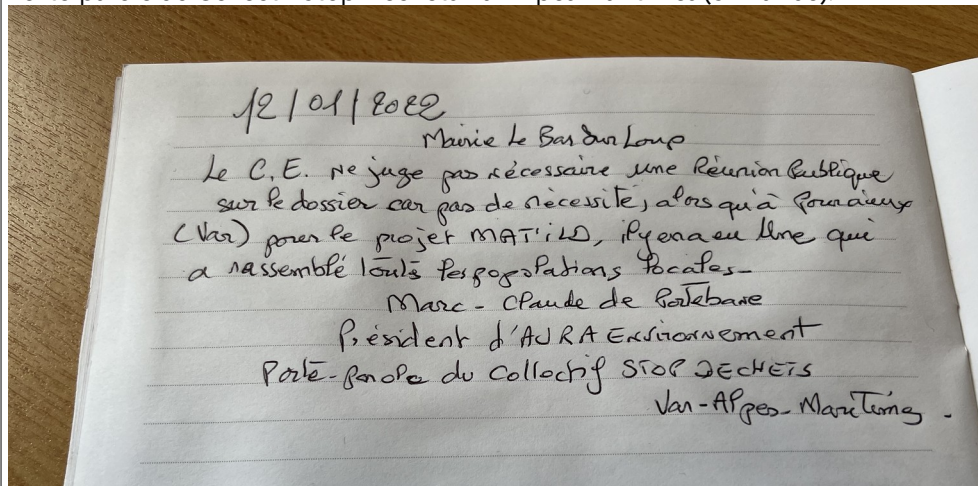 12/01/2022
Mairie Le Bar Sur Loup
Le C.E. ne juge pas nécessaire une Réunion Publique
sur le dossier car pas de nécessité, alors qu'à Pourcieux
(Var) pour le projet MAT'ILD, il y en a eu Une qui
a rassemblé toutes les populations locales-
Marc-Claude de Portebane
Président d'AURA Environnement
Porte-Parole du Collectif STOP DECHETS
Var-Alpes-Maritimes.